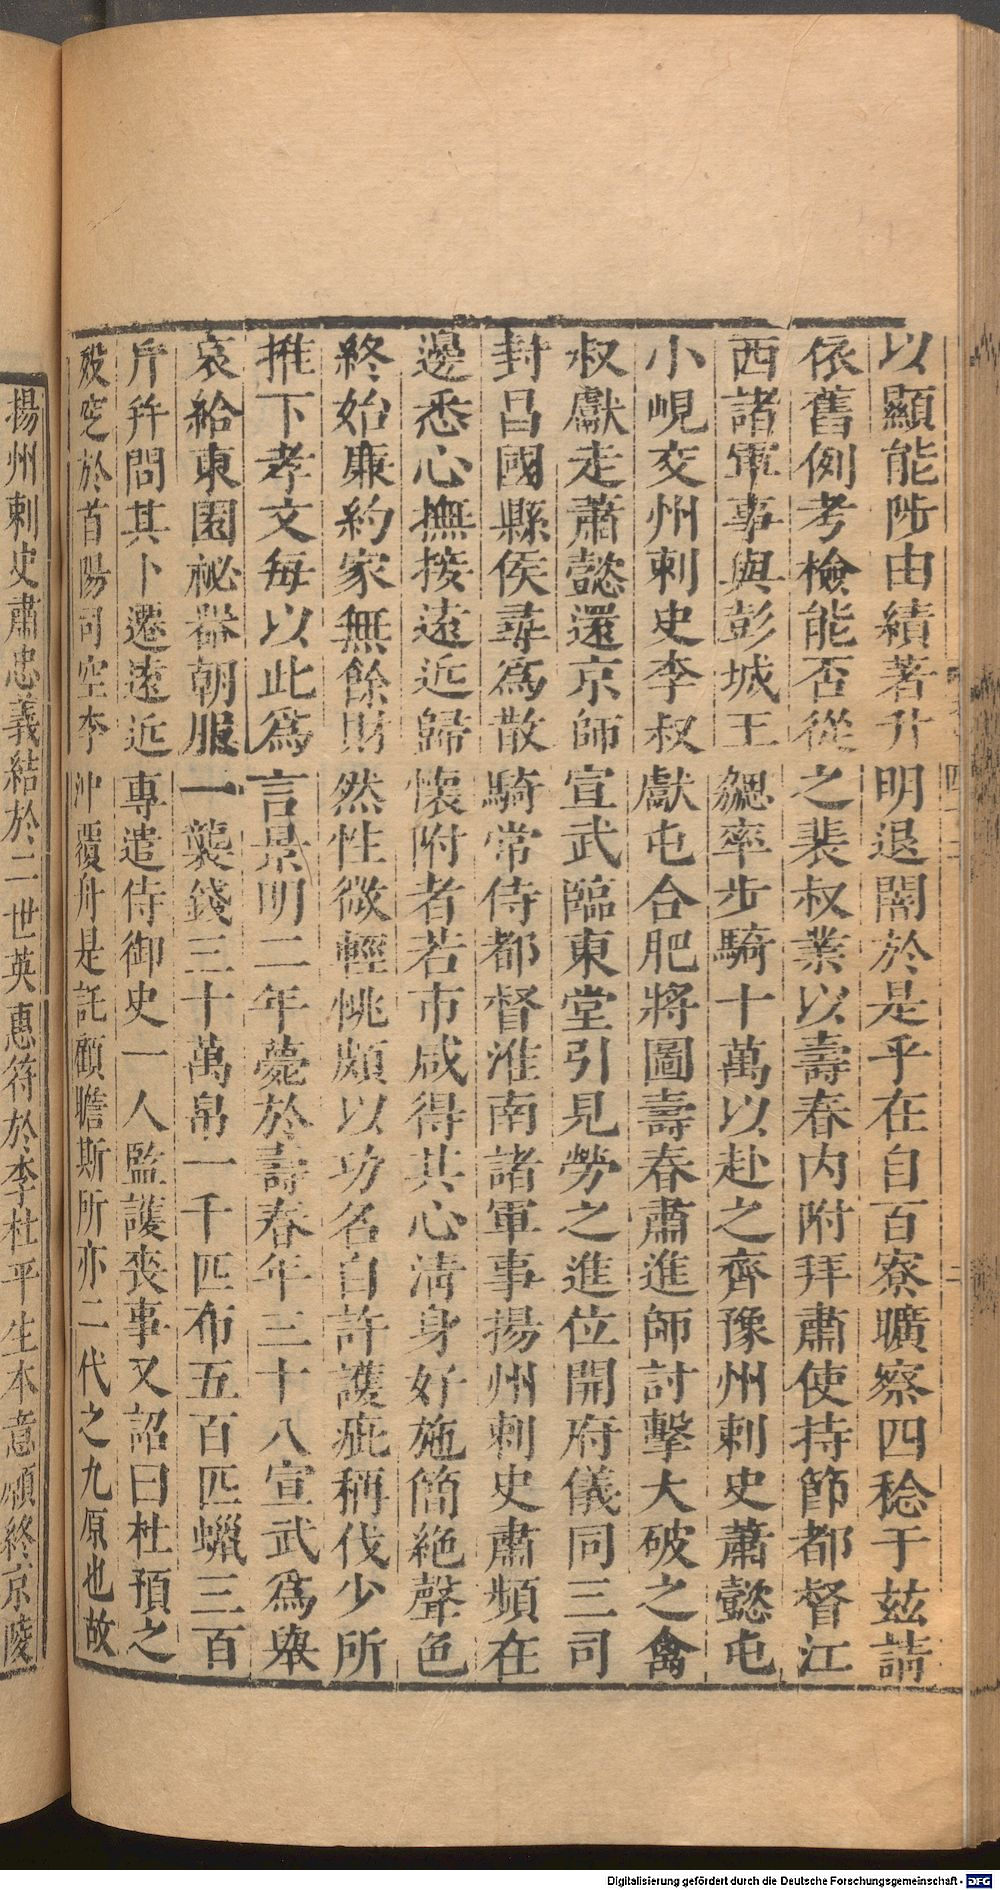 以顯能陟由績著升明退闇於是乎在自百寮曠察四稔于玆請
依舊例考檢能否從之裴叔業以壽春內附拜肅使持節都督江
西諸軍事與彭城王勰率步騎十萬以赴之齊豫州刺史蕭懿屯
小峴交州刺史李叔獻屯合肥將圖壽春肅進師討擊大破之禽
叔獻走蕭懿還京師宣武臨東堂引見勞之進位開府儀同三司
封昌國縣侯尋爲散騎常侍都督淮南諸軍事揚州刺史肅頻在
邊悉心撫接遠近歸懷附者若市咸得其心淸身好施簡絶聲色
終始廉約家無餘財然性微輕佻頗以功名自許護疵稱伐少所
推下孝文每以此爲言景明二年薨於壽春年三十八宣武爲舉
哀給東園祕器朝服一襲錢三十萬帛一千匹布五百匹蠟三百
斤并問其卜遷遠近專遣侍御史一人監護喪事又詔曰杜預之
歿窆於首陽司空李沖覆舟是託顧瞻斯所亦二代之九原也故
揚州刺史肅忠義結於二世英惠符於李杜平生本意願終京陵
Digitalisierung gefördert durch die Deutsche Forschungsgemeinschaft - DFG